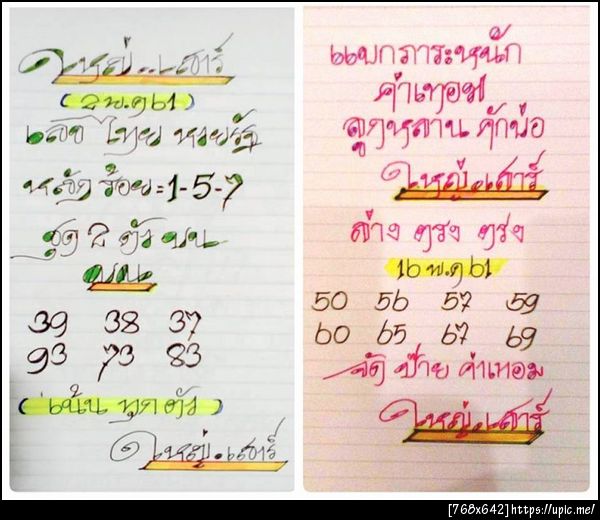 ใหญ่..เสาร์
(2 พ.ค 61)
เลข ไทย หวยรัฐ
หลัก ร้อย=1-5-7
ชุด 2 ตัว บน
บน
39 38 37
93 73 83
(เน้น ทุก ตัว)
ใหญ่.เสาร์
แบกภาระหนัก
คำเทอม
ลูกหลาน คักพ่อ
ใหญ่..เสาร์
ล่าง ตรง ตรง
16 พ.ค 61
50 56 57 59
60 65 67 69
จัด ป๋าย ค่าเทอม
ใหญ่..เสาร์
[768x642]https://upic.me/